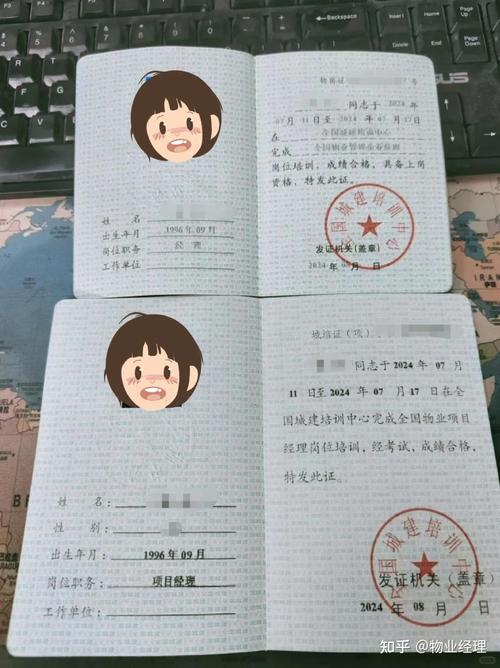 Backspace
ASUS
IRAN
物岗证
号
同志于 2024 年
07 月 11 日至 2024 年 07 月 17 日
在 全国城建培训中心
完成 全国物业管理企业经理
岗位培训，成绩合格，具备上岗
资格，特发此证。
全国城建培训中心
发证机关(盖章)
2024 年 08 月 日
姓 名
出生年月 1996 年 09 月
岗位职务 经 理
工作单位
城培证（项）
同志于 2024 年 07 月
11 日至 2024 年 07 月 17 日在全
国城建培训中心完成全国物业项目
经理岗位培训，经考试，成绩合格，
特发此证。
全国城建培训中心
发证机关（盖章）
2024 年 08 月 日
姓 名：
性 别：
出生年月： 1996 年 09 月
岗位职务： 项目经理
工作单位：
知乎 @物业经理